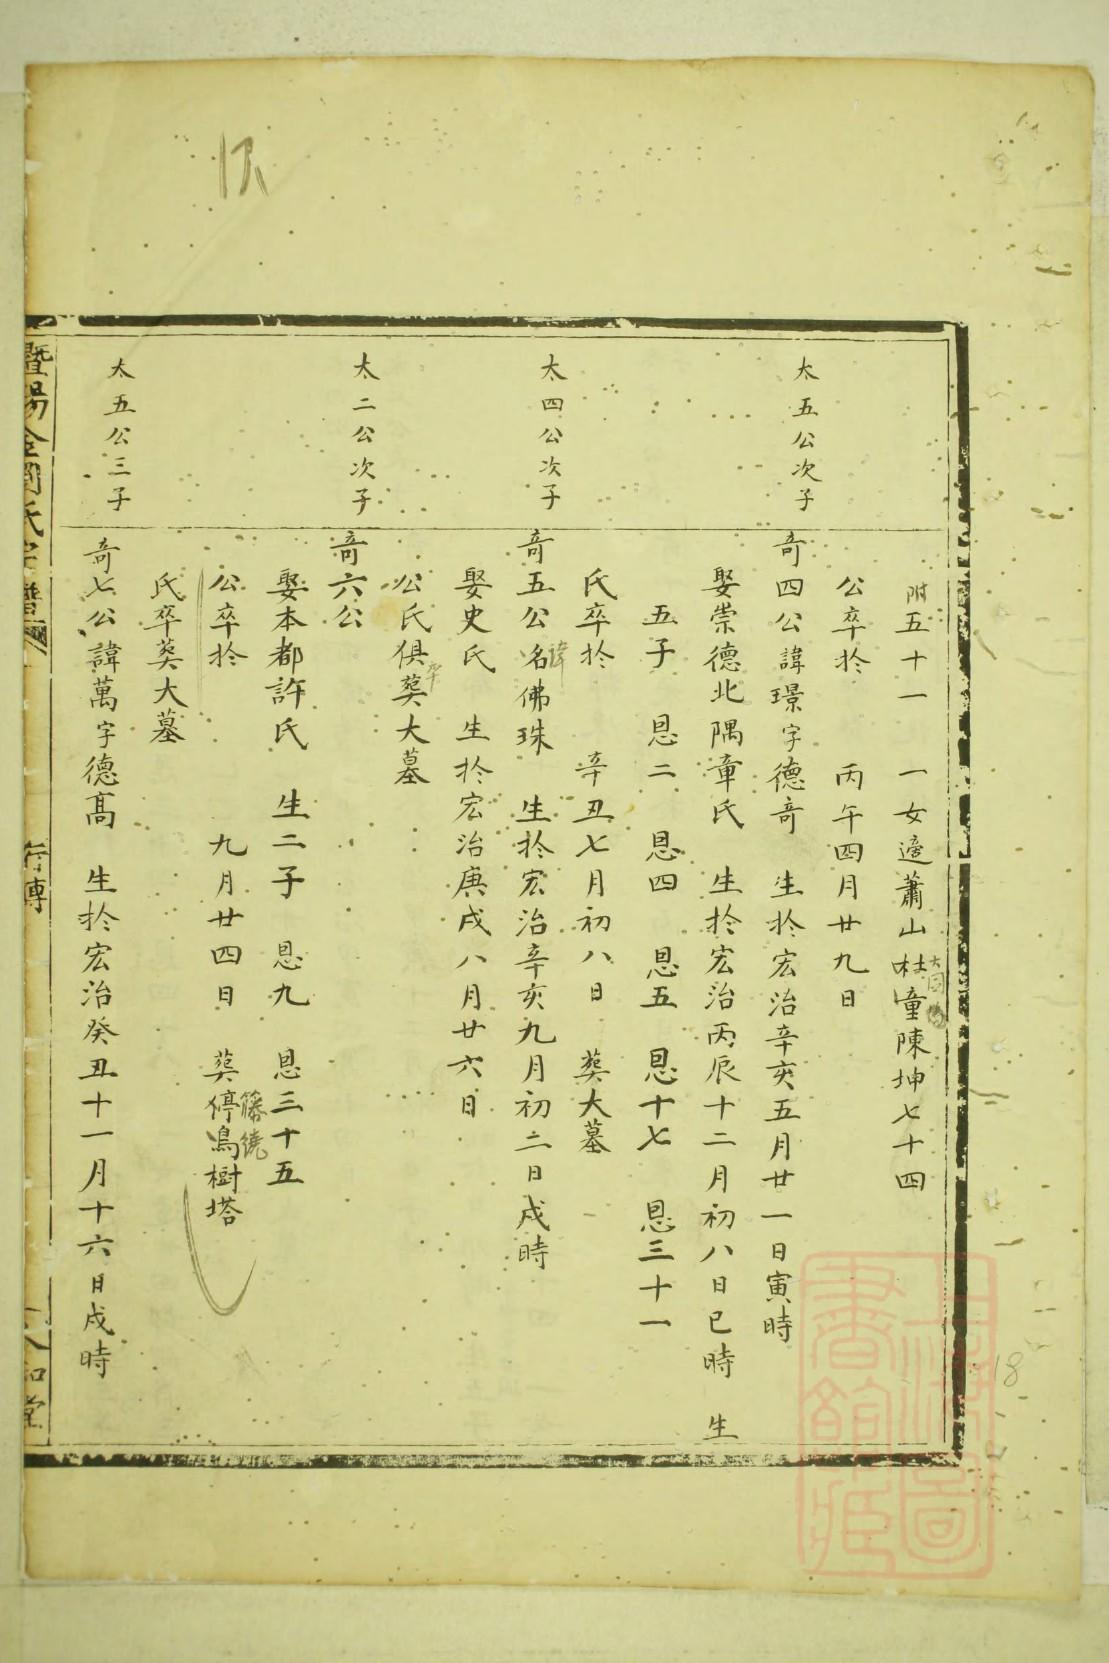 附五十一　一女適蕭山杜童陳坤七十四
大同
公卒於　丙午四月廿九日
太五公次子
奇四公諱璟字德奇　生於宏治辛亥五月廿一日寅時
娶崇德北隅章氏　生於宏治丙辰十二月初八日巳時　生
五子　恩二　恩四　恩五　恩十七　恩三十一
氏卒於　辛丑七月初八日　葬大墓
太四公次子
奇五公名佛珠　生於宏治辛亥九月初二日戌時
諱
娶史氏　生於宏治庚戌八月廿六日
公氏俱葬大墓
卒
太二公次子
奇六公
娶本都許氏　生二子　恩九　恩三十五
公卒於　九月廿四日　葬停鳥樹塔
藤繞
氏卒葬大墓
太五公三子
奇七公諱萬字德高　生於宏治癸丑十一月十六日戌時
暨陽全周氏宗譜
行傳
18
上海圖書館藏